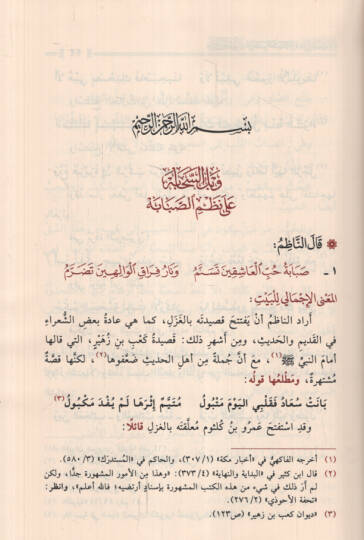 بسم الله الرحمن الرحيم
على نظم الصبابة
قَالَ النَّاظِمُ:
١ - صَبَابَةُ حُبِّ الْعَاشِقِينَ تَسَنَّمُ وَنَارُ فِرَاقِ الْوَالِهِينَ تَضَرَّمُ
المعنى الإجمالي للبيت:
أراد الناظمُ أنْ يَفتتحَ قصيدتَه بالغَزَلِ، كما هي عادةُ بعضِ الشُّعراءِ
في القَديمِ والحَديثِ، ومِن أشهرِ ذلك: قَصيدةُ كَعْبِ بنِ زُهَيْرٍ، التي قالها
أمامَ النبيِّ ﷺ(١)، مَعَ أنَّ جُملةً مِن أهلِ الحديثِ ضَعَّفوها(٢)، لكنَّها قصَّةٌ
مُشتهرةٌ، ومَطلعُها قولُه:
بَانَتْ سُعَادُ فَقَلْبِي الْيَوْمَ مَتْبُولُ مُتَيَّمٌ إِثْرَهَا لَمْ يُفْدَ مَكْبُولُ(٣)
وقدِ استَفتحَ عَمرُو بنُ كُلثومٍ مُعلَّقتَه بالغزلِ قائلًا:
(١) أخرجه الفاكهي في «أخبار مكة» (٣٠٧/١)، والحاكم في «المستدرك» (٥٨٠/٣).
(٢) قال ابن كثير في «البداية والنهاية» (٣٧٣/٤): «وهذا من الأمور المشهورة جدًّا، ولكن
لم أرَ ذلك في شيء من هذه الكتب المشهورة بإسنادٍ أرتضيه؛ فالله أعلم»، وانظر:
«تحفة الأحوذي» (٢٧٦/٢).
(٣) «ديوان كعب بن زهير» (ص١٢٣).